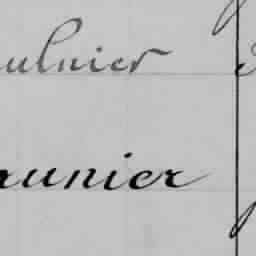 ulnier
unier